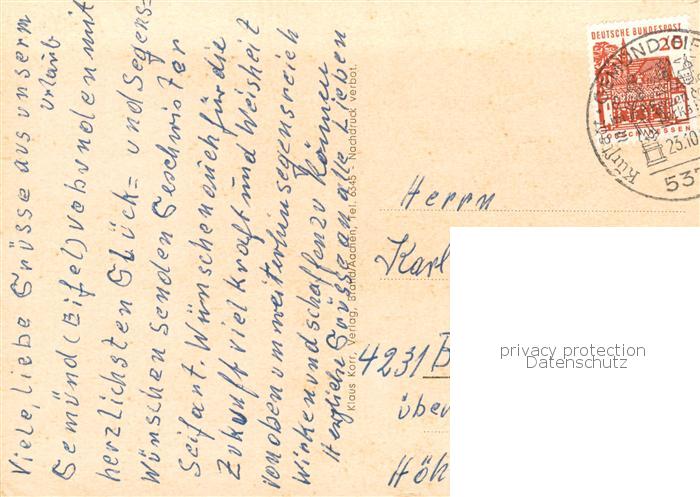 Viele, liebe Grüsse aus unserm
Urlaub
Gemünd (Eifel) verbunden mit
herzlichsten Glück= und Segens=
Wünschen senden Geschwister
Seifart. Wünschen auch für die
Zukunft viel Kraft und Weisheit
von oben um weiterhin segensreich
Wirken und schaffen zu können
Herzliche Grüsse an alle Lieben
Klaus Korr, Verlag, Brand/Aachen, Tel. 6345 - Nachdruck verbot.
DEUTSCHE BUNDESPOST
20
LORSCH/HESSEN
GEMÜND (EIFEL)
Kurort
23.10
537
Herrn
Karl
4231 B
über
Höh
privacy protection
Datenschutz